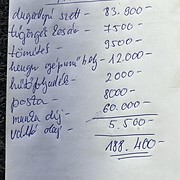 dugattyú szett - 83.900-
tűgörgős kosár - 7500-
tömítés - 9500-
henger - 12.000-
hűtőfolyadék - 2000-
posta - 8000-
munka díj - 60.000-
váltó olaj - 5.500-
188.400-